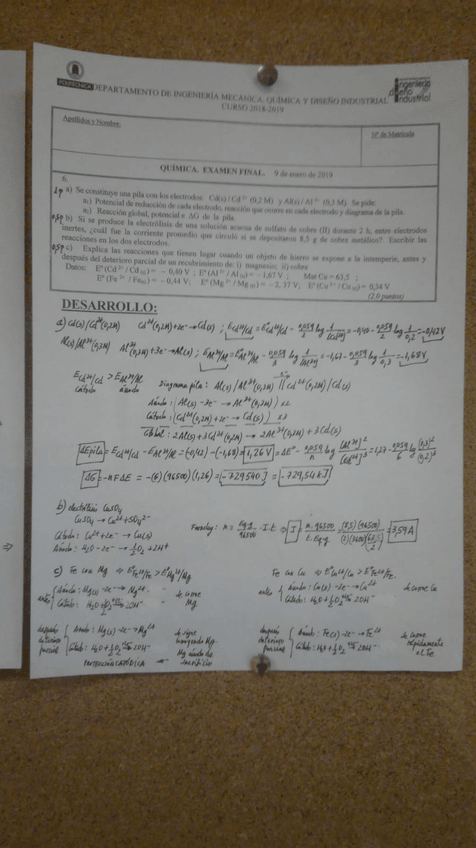 POLITÉCNICA
DEPARTAMENTO DE INGENIERÍA MECÁNICA, QUÍMICA Y DISEÑO INDUSTRIAL
CURSO 2018-2019
ingeniería diseño industrial
Apellidos y Nombre:
Nº de Matrícula
QUÍMICA. EXAMEN FINAL. 9 de enero de 2019
6.
a) Se constituye una pila con los electrodos: Cd(s) / Cd²⁺ (0,2 M) y Al(s) / Al³⁺ (0,3 M). Se pide:
a₁) Potencial de reducción de cada electrodo, reacción que ocurre en cada electrodo y diagrama de la pila.
a₂) Reacción global, potencial e ΔG de la pila.
b) Si se produce la electrólisis de una solución acuosa de sulfato de cobre (II) durante 2 h, entre electrodos
inertes, ¿cuál fue la corriente promedio que circuló si se depositaron 8,5 g de cobre metálico? Escribir las
reacciones en los dos electrodos.
c) Explica las reacciones que tienen lugar cuando un objeto de hierro se expone a la intemperie, antes y
después del deterioro parcial de un recubrimiento de: i) magnesio; ii) cobre
Datos: Eº (Cd²⁺ / Cd(s)) = – 0,40 V ; Eº (Al³⁺ / Al(s)) = -1,67 V ; Mat Cu = 63,5 ;
Eº (Fe²⁺ / Fe(s)) = – 0,44 V; Eº (Mg²⁺ / Mg(s)) = – 2, 37 V; Eº (Cu²⁺ / Cu(s)) = 0,34 V
(2,0 puntos)
DESARROLLO:
a) Cd(s)/Cd²⁺(0,2M) Cd²⁺(0,2M)+2e⁻→Cd(s) ; E Cd²⁺/Cd = Eº Cd²⁺/Cd - 0,059/2 log 1/[Cd²⁺] = -0,40 - 0,059/2 log 1/0,2 = -0,42V
Al(s)/Al³⁺(0,3M) Al³⁺(0,3M)+3e⁻→Al(s) ; E Al³⁺/Al = Eº Al³⁺/Al - 0,059/3 log 1/[Al³⁺] = -1,67 - 0,059/3 log 1/0,3 = -1,68V
E Cd²⁺/Cd > E Al³⁺/Al Diagrama pila: Al(s)/Al³⁺(0,3M) || Cd²⁺(0,2M)/Cd(s)
Cátodo Ánodo
Ánodo: (Al(s) - 3e⁻ → Al³⁺(0,3M)) x2
Cátodo: (Cd²⁺(0,2M) + 2e⁻ → Cd(s)) x3
Global: 2Al(s) + 3Cd²⁺(0,2M) → 2Al³⁺(0,3M) + 3Cd(s)
ΔE pila = E Cd²⁺/Cd - E Al³⁺/Al = (-0,42) - (-1,68) = 1,26V = ΔEº - 0,059/n log [Al³⁺]²/[Cd²⁺]³ = 1,27 - 0,059/6 log (0,3)²/(0,2)³
ΔG = -nFΔE = -(6)(96500)(1,26) = -729540 J = -729,54 kJ
b) CuSO₄
CuSO₄ → Cu²⁺ + SO₄²⁻
Cátodo: Cu²⁺ + 2e⁻ → Cu(s)
Ánodo: H₂O - 2e⁻ → ½O₂ + 2H⁺
Faraday: m = Eq/96500 · I·t ⇒ I = m·96500/t·Eq = (8,5)(96500)/(2)(3600)(63,5/2) = 3,59A
c) Fe con Mg ⇒ Eº Fe²⁺/Fe > Eº Mg²⁺/Mg
Fe con Cu ⇒ Eº Cu²⁺/Cu > Eº Fe²⁺/Fe
antes Ánodo: Mg(s) - 2e⁻ → Mg²⁺
Cátodo: H₂O + ½O₂ → 2OH⁻
se corroe Mg
antes Ánodo: Cu(s) - 2e⁻ → Cu²⁺
Cátodo: H₂O + ½O₂ → 2OH⁻
se corroe Cu
después deterioro parcial Ánodo: Mg(s) - 2e⁻ → Mg²⁺
Cátodo: H₂O + ½O₂ → 2OH⁻
se sigue corroyendo Mg
Mg ánodo de sacrificio
PROTECCIÓN CATÓDICA
después deterioro parcial Ánodo: Fe(s) - 2e⁻ → Fe²⁺
Cátodo: H₂O + ½O₂ → 2OH⁻
se corroe rápidamente el Fe